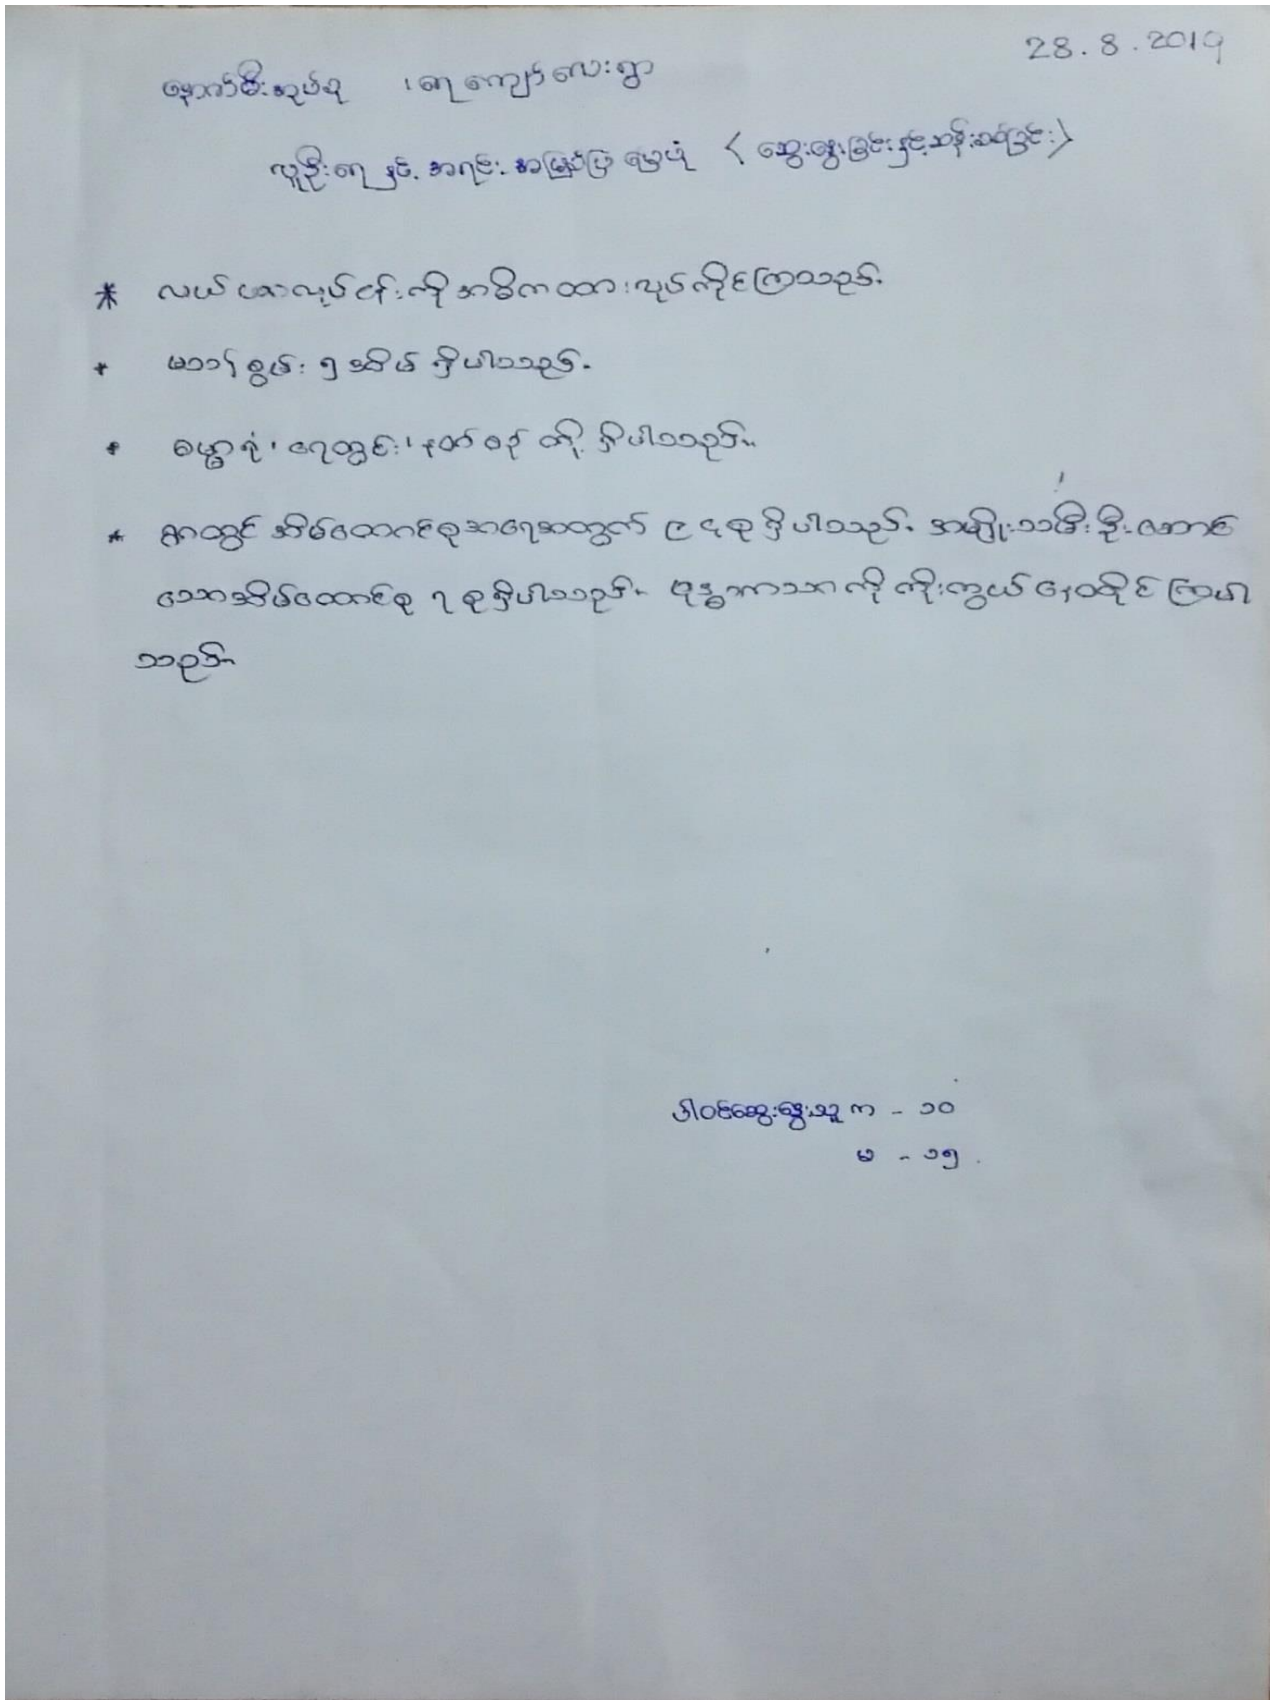 28.8.2019
နောက်မီးအုပ်စု ၊ ရေကျော်လေးရွာ
လူဦးရေ နှင့် အရင်းအမြစ်ပြ မြေပုံ < ဆွေးနွေးခြင်းနှင့်ဆန်းစစ်ခြင်း >
* လယ်ယာလုပ်ငန်းကို အဓိကထားလုပ်ကိုင်ကြသည်။
* မသန်စွမ်း ၅ အိမ် ရှိပါသည်။
* ဓမ္မာရုံ၊ ရေတွင်း၊ နတ်စင် တို့ ရှိပါသည်။
* ရွာတွင် အိမ်ထောင်စုအရေအတွက် ၉၄ စု ရှိပါသည်။ အမျိုးသမီးဦးဆောင်
သောအိမ်ထောင်စု ၇ စုရှိပါသည်။ ဗုဒ္ဓဘာသာကို ကိုးကွယ်နေထိုင်ကြပါ
သည်။
ပါဝင်ဆွေးနွေးသူ က - ၁၀
မ - ၁၅